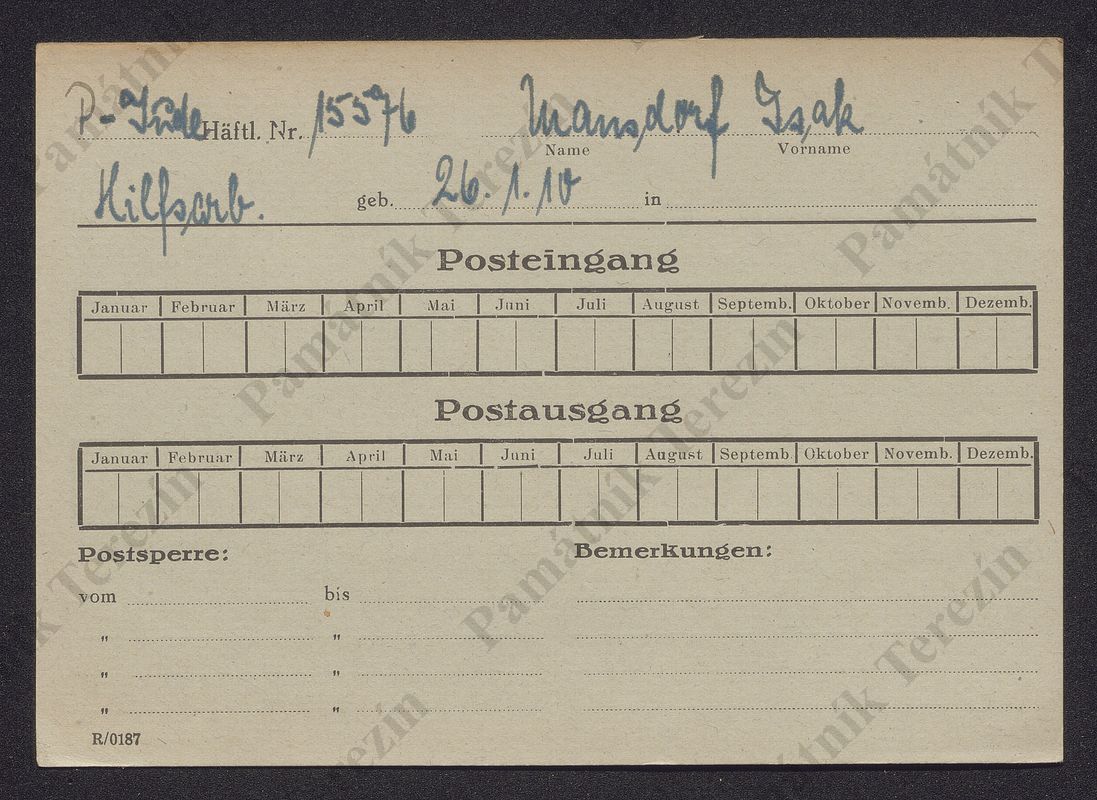 P - Jude Häftl. Nr. 15576 Mansdorf Isak
Name Vorname
Hilfsarb. geb. 26. 1. 10 in
Posteingang
Januar Februar März April Mai Juni Juli August Septemb. Oktober Novemb. Dezemb.
Postausgang
Januar Februar März April Mai Juni Juli August Septemb. Oktober Novemb. Dezemb.
Postsperre: Bemerkungen:
vom bis
" "
" "
" "
R/0187
Památník Terezín